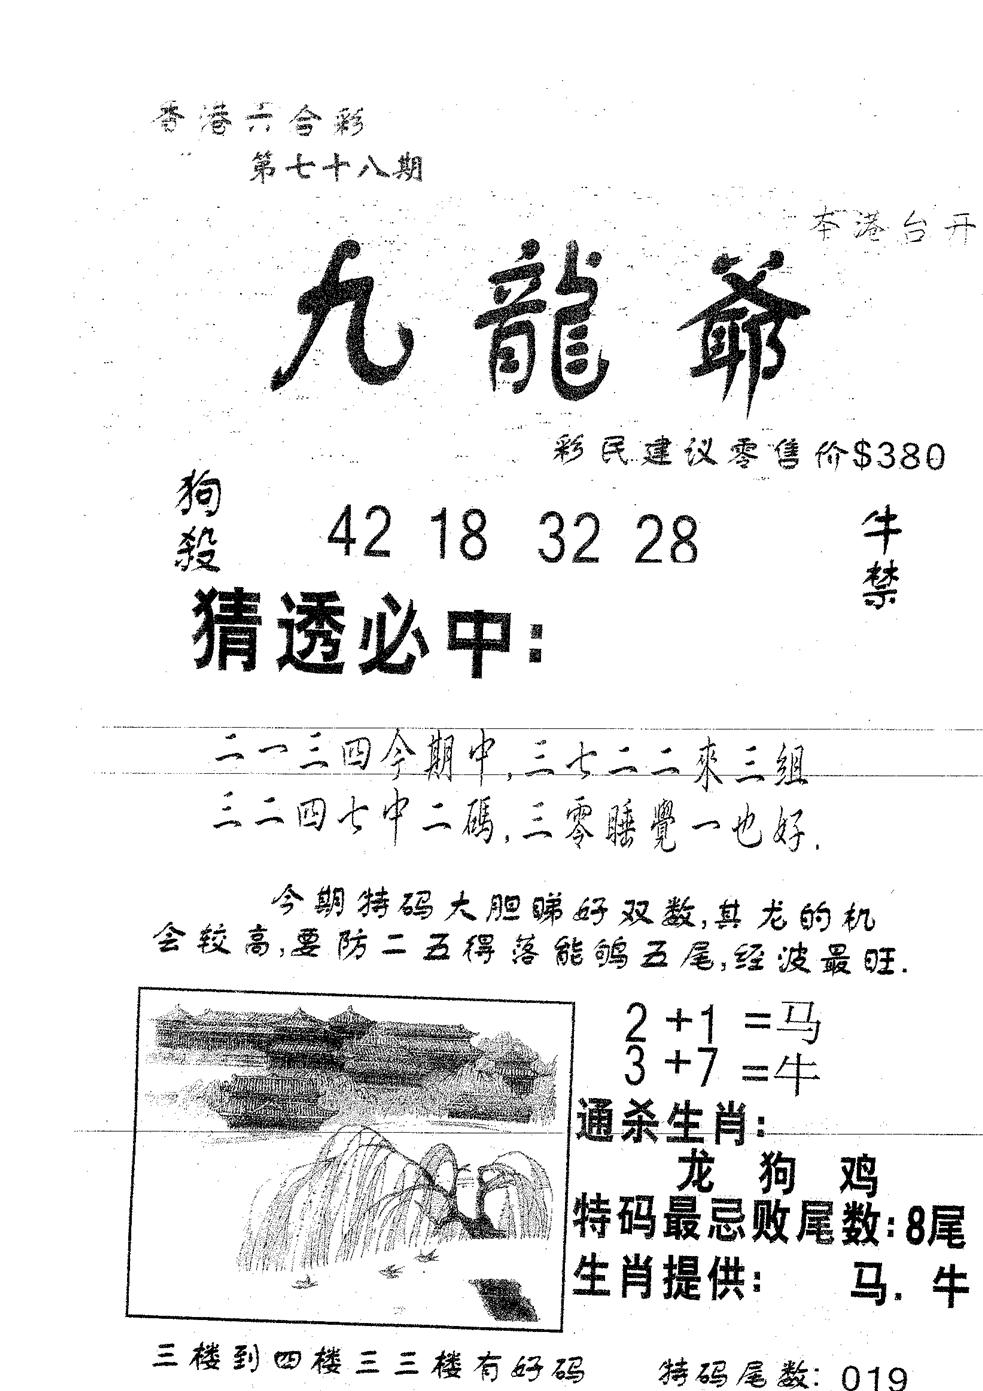 香港六合彩
第七十八期
本港台开
九龍爺
彩民建议零售价$380
狗殺
42 18 32 28
牛禁
猜透必中:
二一三四今期中,三七二二來三組
三二四七中二碼,三零睡覺一也好.
今期特码大胆睇好双数,其龙的机
会较高,要防二五得落能鸲五尾,经波最旺.
2+1=马
3+7=牛
通杀生肖:
龙 狗 鸡
特码最忌败尾数:8尾
生肖提供: 马. 牛
三楼到四楼三三楼有好码 特码尾数: 019